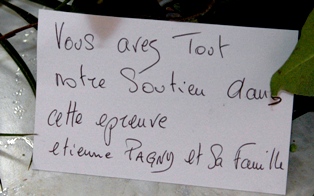 Vous avez Tout
notre Soutien dans
cette epreuve
etienne PAGNY et Sa Famille